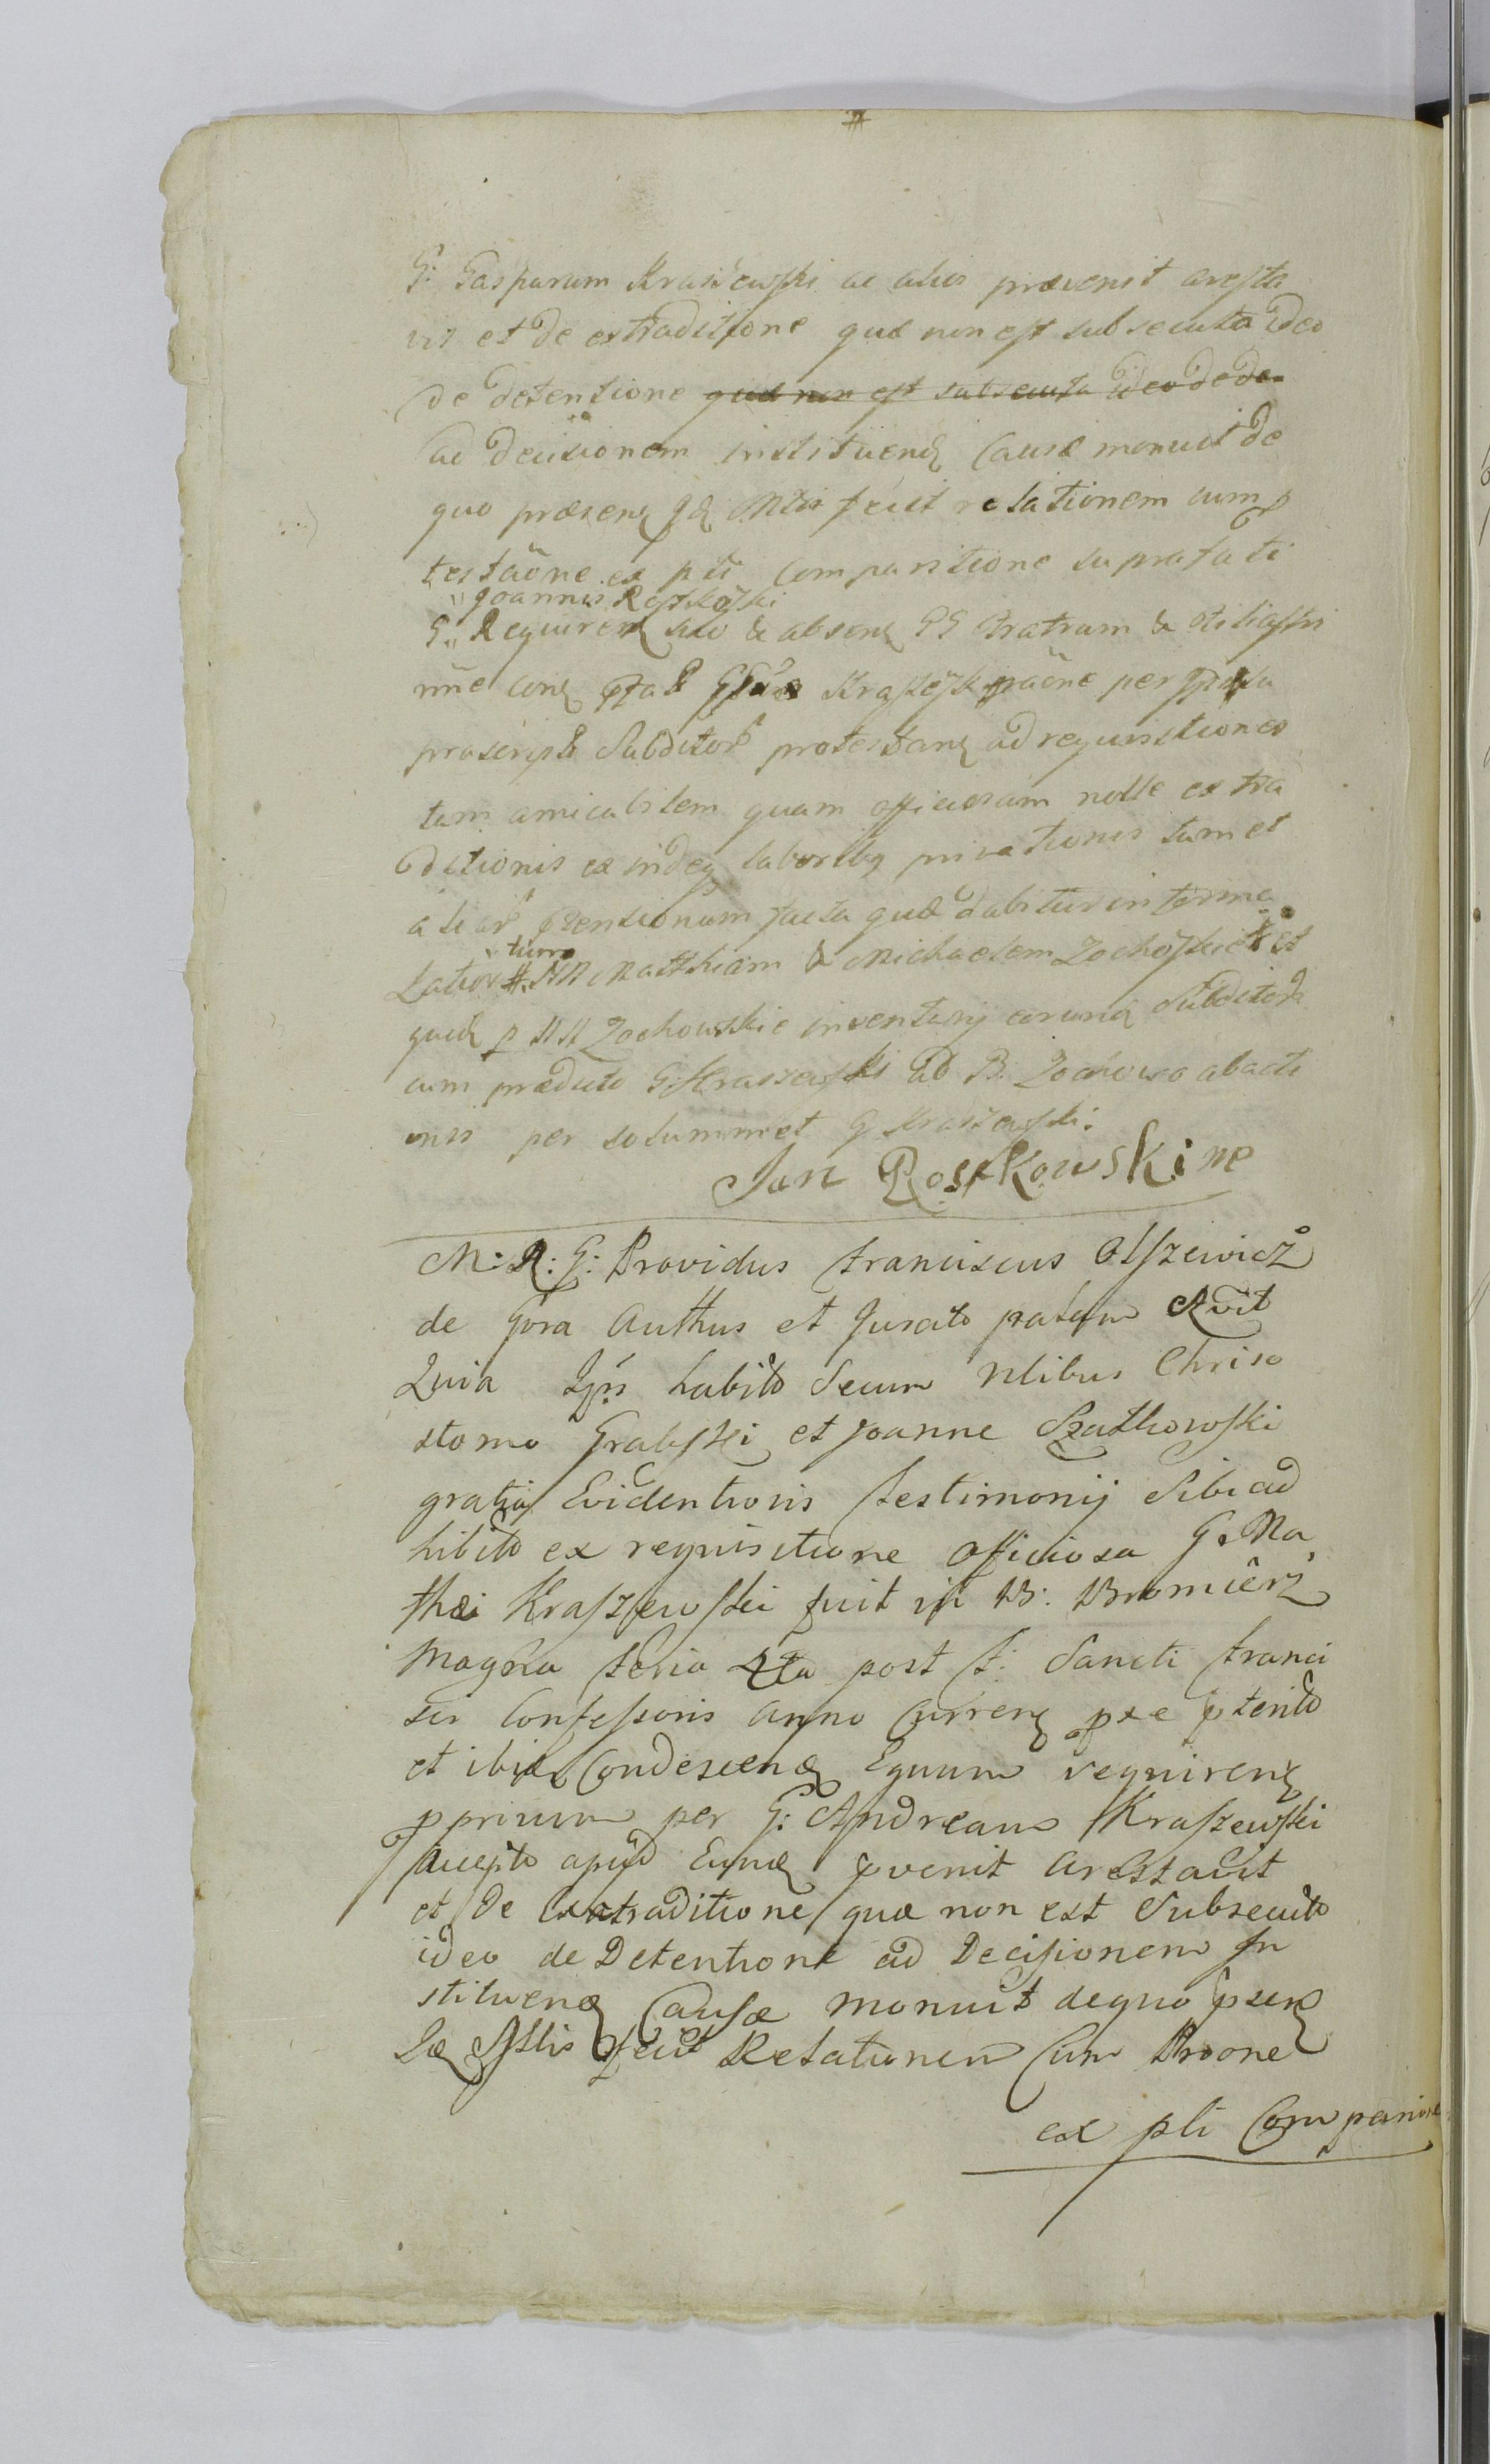 G: Gasparum Kraszewski ac alias prævenit aresta
vit et de extraditione quæ non est subsecuta ideo
de detentione quæ non est subsecuta ideo de de
ad decisionem instituend Causæ monuit de
quo præsens Mtis fecit relationem cum p
testãone ex pti comparitione suprafati
Joannis Rostkoski
G. Requiren suo & absen GG Fratrum &
nñe per
præscript Subditor protestan ad requisitiones
tam amicabilem quam officiosam nolle extra
ditionis ex inde laborib privationis tum et
aliar prtensionum facta quæ dabitur in terme
tum
Lator # NN Matthiam & Michaelem Zochoskie et
quid p NN Zochowskie inventarij eorund Subditor
cum prædicto G Kraszewski ad B: Zochowo abacti
onis per solummet G Kraszewski.
Jan Rostkowski mp
M: R: G: Providus Franciscus Olszewicz
de Gora Authus et Jurato
Quia Ipse habito Secum Nlibus Chriso
stomo Grabski et Joanne Szatkowski
gratia Evidentioris testimonij Sibi ad
hibito ex requisitione officiosa G. Ma
thæi Kraszewski fuit in B: Bromierz
Magna feria 4ta post F: Sancti Franci
sci Confessoris Anno Curren pxe pterito
et ibid Condescend Equum requiren
pprium per G: Andream Kraszewski
accepto apud Eund pvenit Arestavit
et de Extraditione quæ non est Subsecuto
ideo de Detentione ad Decisionem In
stituend Causæ monuit de quo psen
fecit Relationem Cum Prone
ex pti Comparione